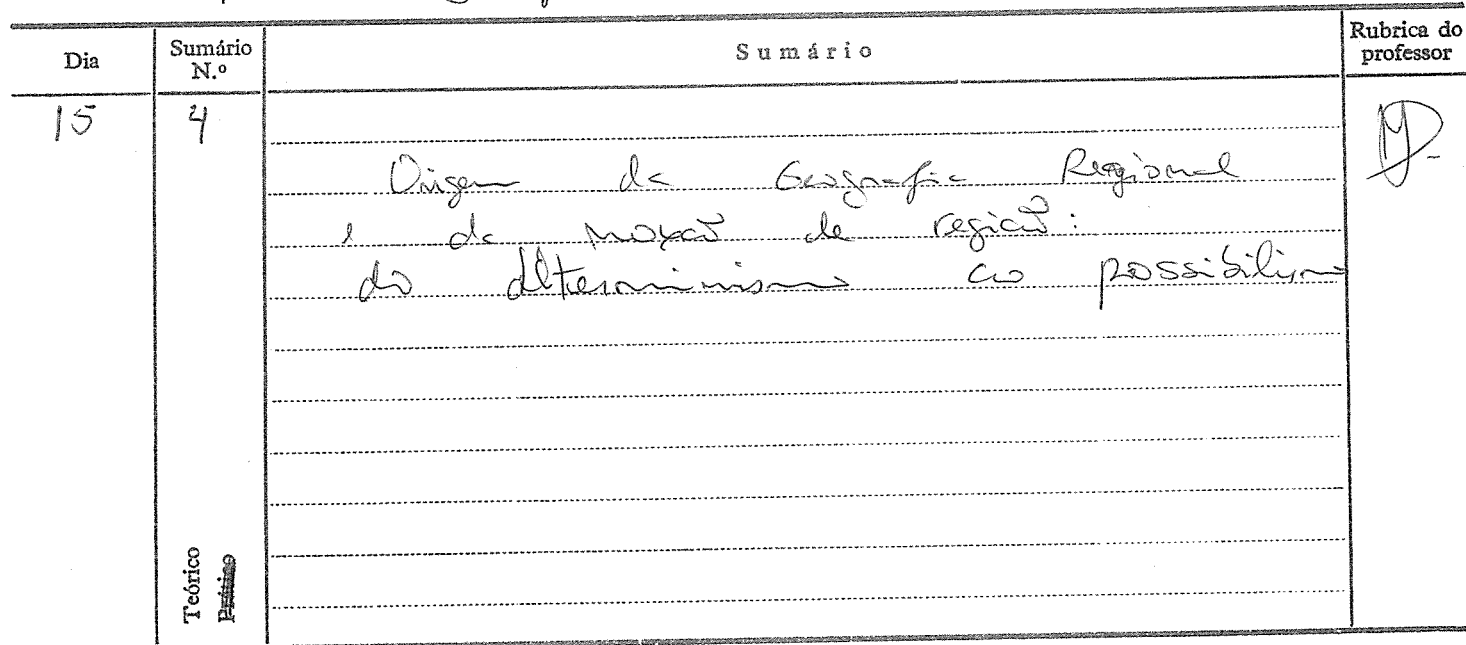 Dia
Sumário
N.º
Sumário
Rubrica do
professor
15
4
Origem da Geografia Regional
e da noção de região:
do determinismo ao possibilismo
Teórico
Prático